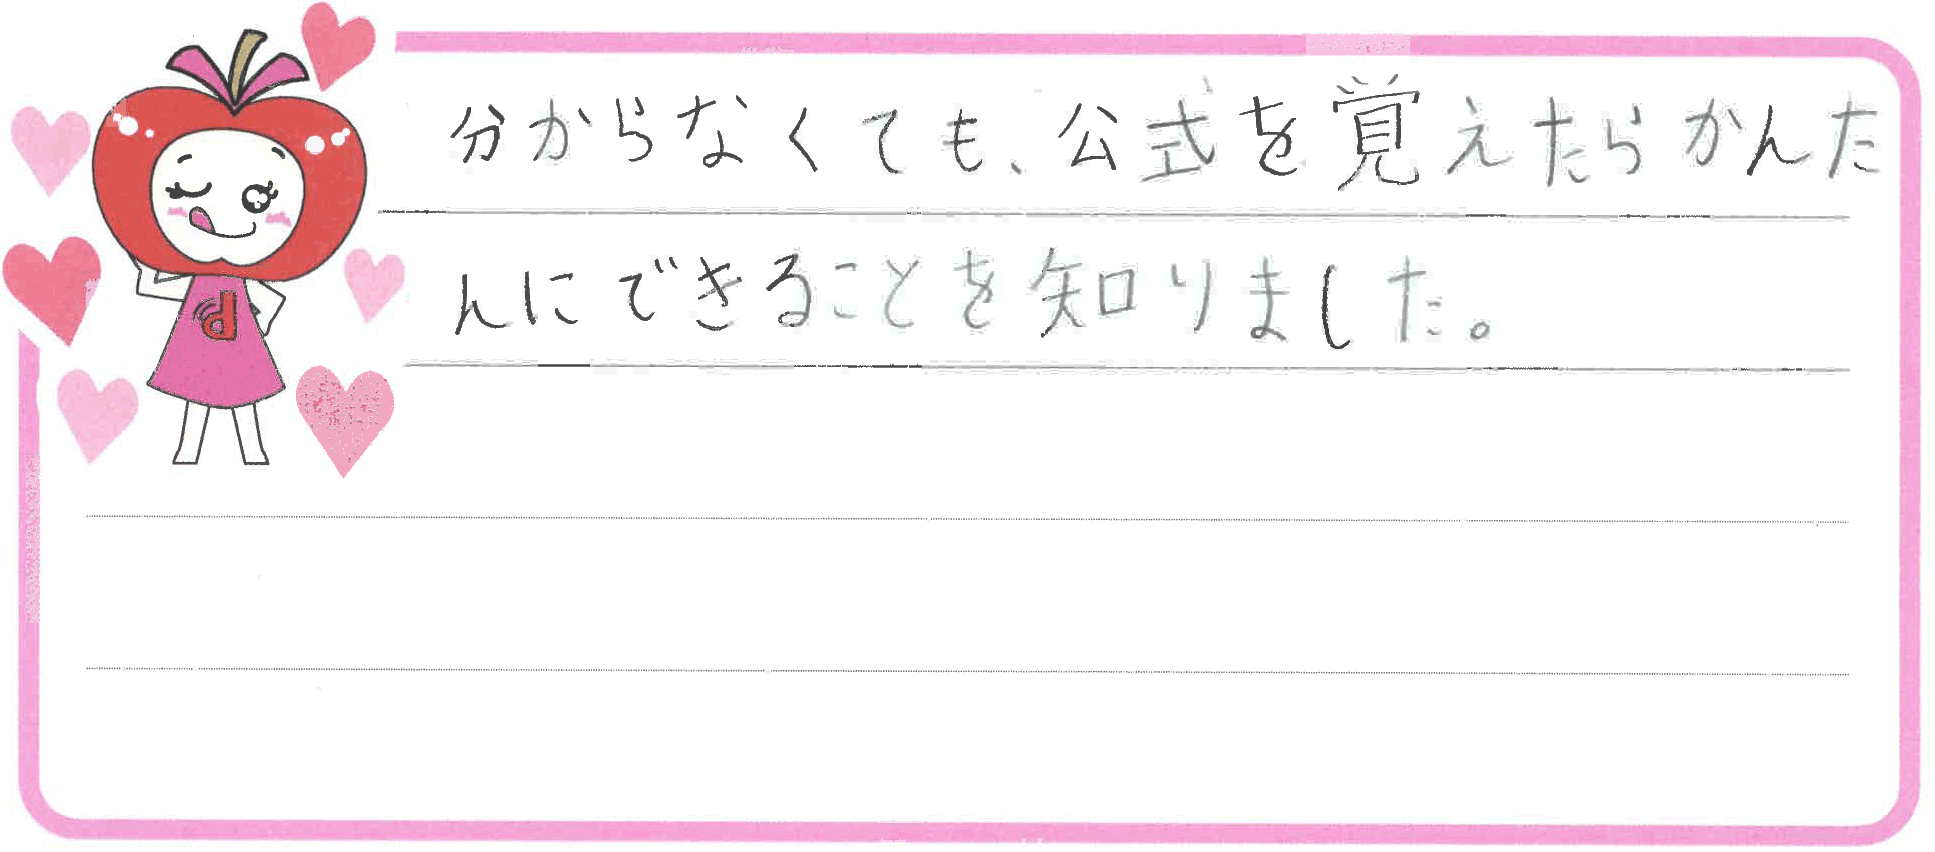 分からなくても、公式を覚えたらかんた
んにできることを知りました。
d